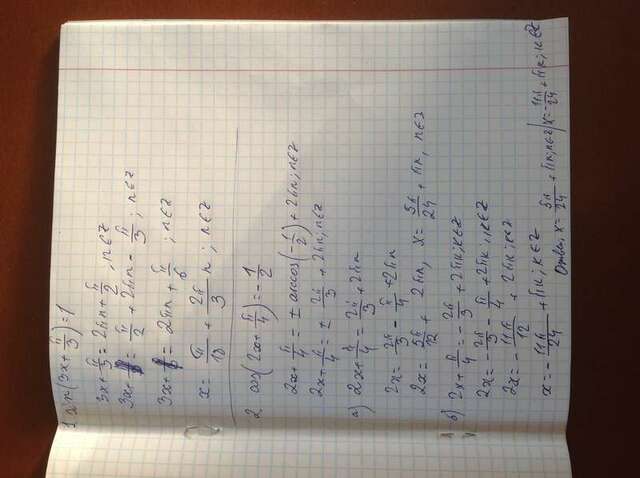 1 sin(3x + π/3) = 1
3x + π/3 = 2πn + π/2, n∈Z
3x + = π/2 + 2πn - π/3; n∈Z
3x + = 2πn + π/6; n∈Z
x = π/18 + 2π/3 n; n∈Z
2. cos(2x + π/4) = - 1/2
2x + π/4 = ± arccos(-1/2) + 2πn; n∈Z
2x + π/4 = ± 2π/3 + 2πn; n∈Z
а) 2x + π/4 = 2π/3 + 2πn
2x = 2π/3 - π/4 + 2πn
2x = 5π/12 + 2πn, x = 5π/24 + πn, n∈Z
б) 2x + π/4 = - 2π/3 + 2πk; k∈Z
2x = - 2π/3 - π/4 + 2πk; k∈Z
2x = - 11π/12 + 2πk; k∈Z
x = - 11π/24 + πk; k∈Z
Ответ, x = 5π/24 + πn; n∈Z / x = - 11π/24 + πk; k∈Z